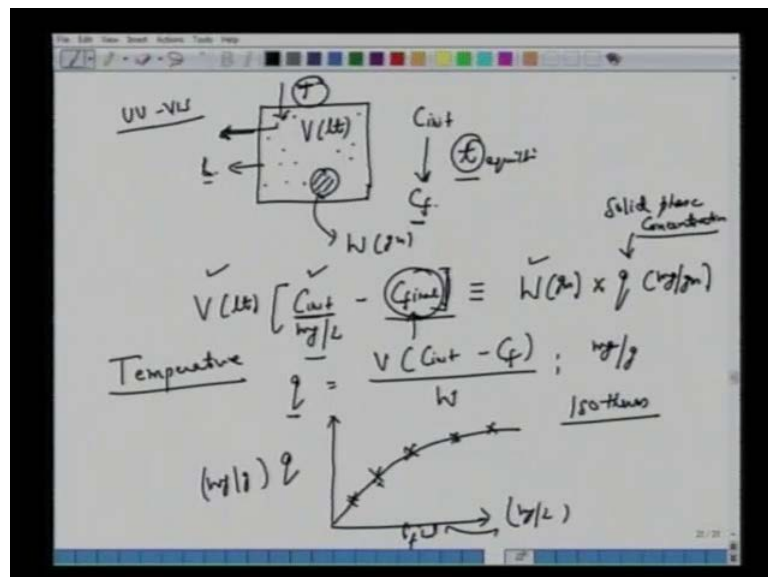 File Edit View Insert Actions Tools Help
UV-VIS
T
V(lt)
Cinit
t equili
L
Cf.
W(gm)
Solid phase
Concentration
V(lt) [Cinit - Cfinal] ≡ W(gm) × q (mg/gm)
mg/L
Temperature
q = V(Cinit - Cf) / W ; mg/g
Isotherm
(mg/g) q
(mg/L)
21/21